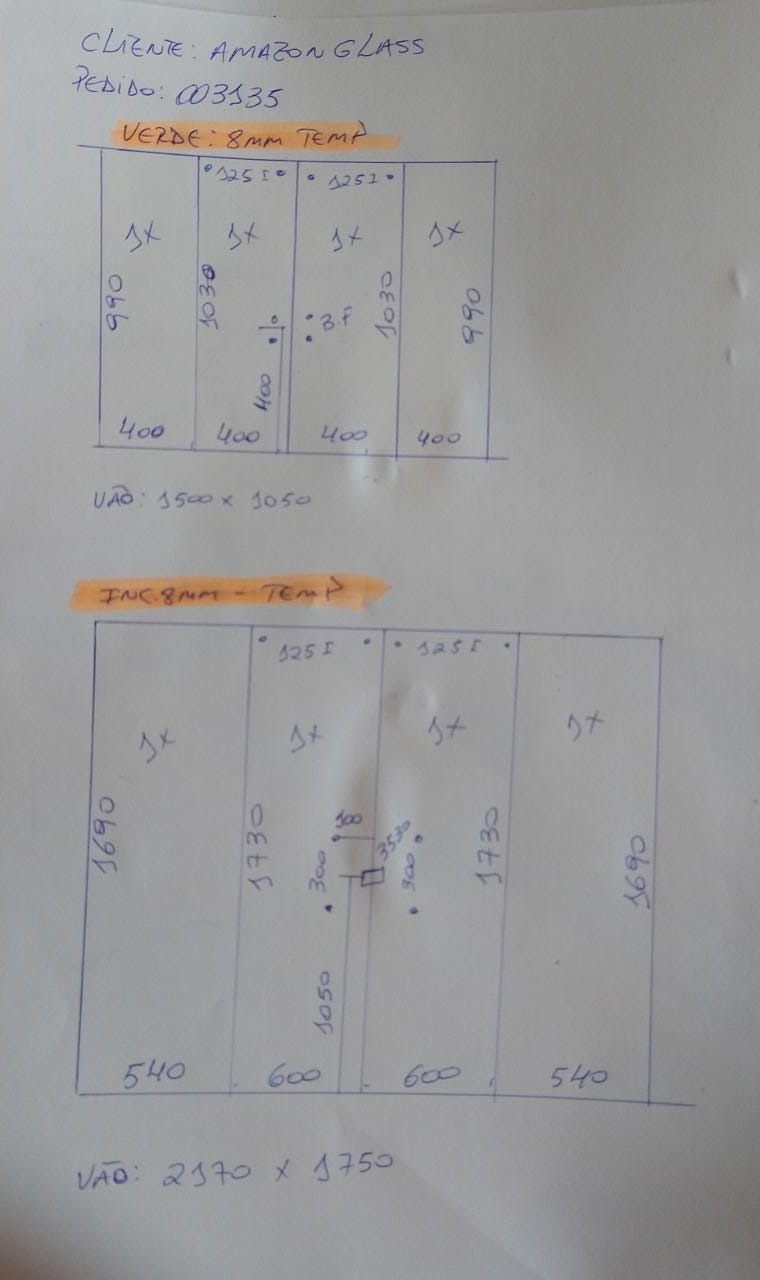 CLIENTE: AMAZON GLASS
PEDIDO: 003135
VERDE: 8MM TEMP
125 I 125 I
1X 1X 1X 1X
990 1030 B.F 1030 990
400
400 400 400 400
VÃO: 1500 x 1050
INC. 8MM - TEMP
125 I 125 I
1X 1X 1X 1X
100
1690 1730 300 3530 300 1730 1690
1050
540 600 600 540
VÃO: 2170 x 1750